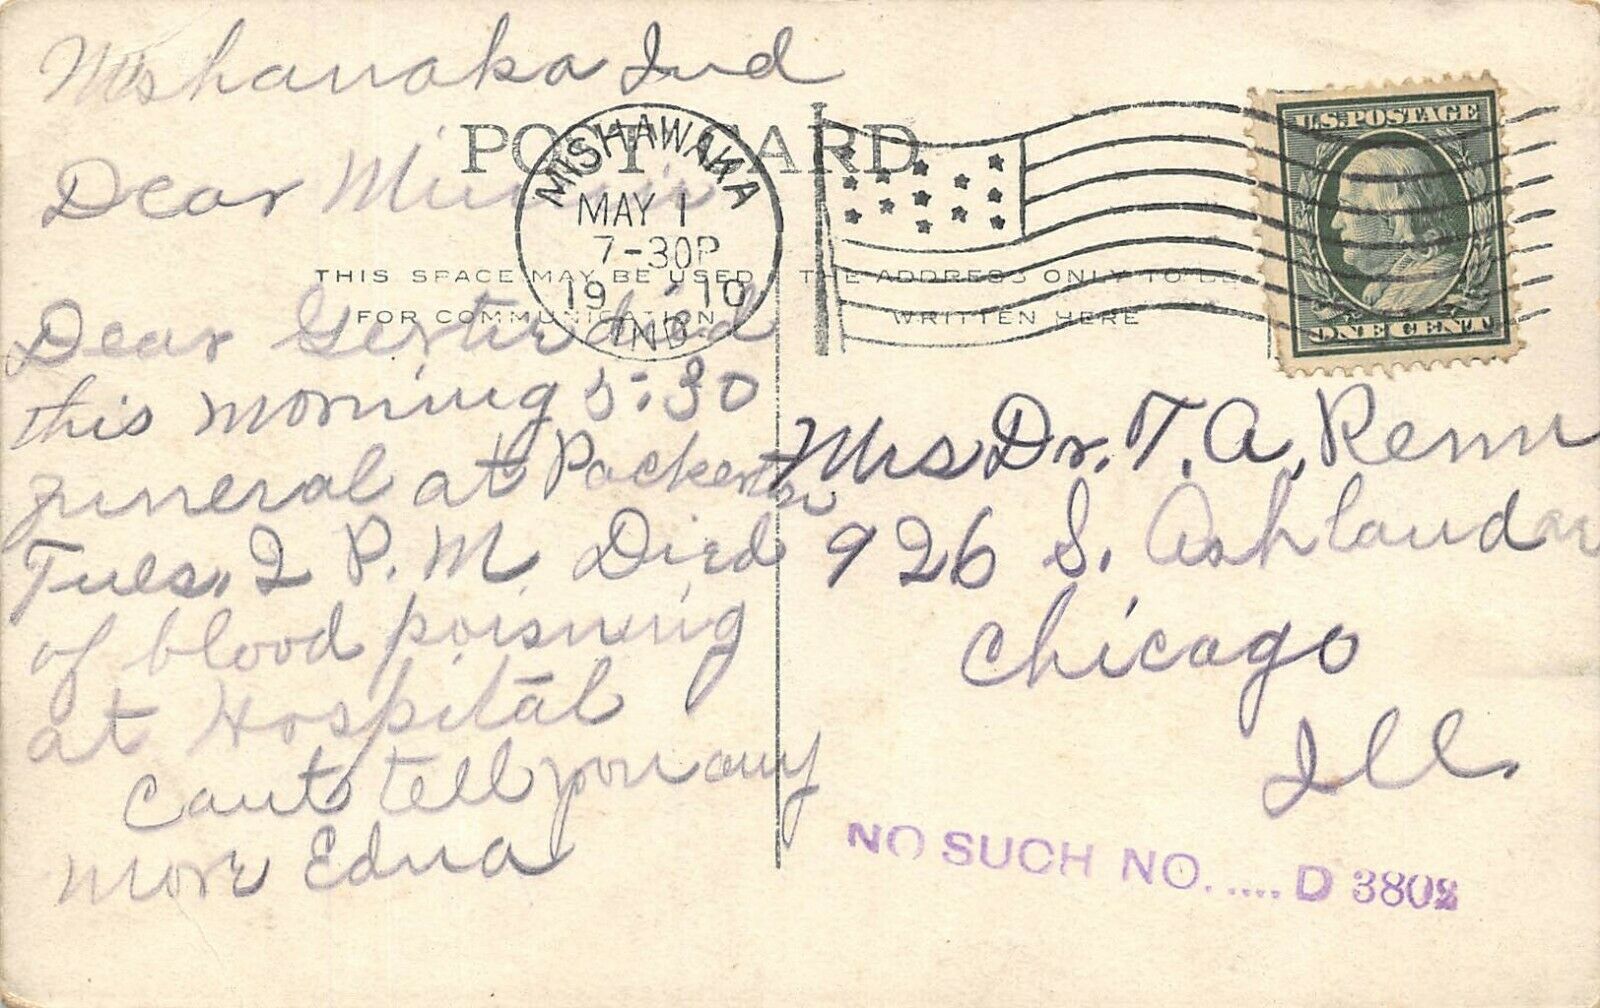 Mishawaka Ind
POST CARD
MISHAWAKA
MAY 1
7-30P
19 10
IND
U.S. POSTAGE
ONE CENT
Dear Minnie
THIS SPACE MAY BE USED
FOR COMMUNICATION
THE ADDRESS ONLY TO BE
WRITTEN HERE
Dear Gertie died
this morning 5:30
funeral at Packerton
Tues. 2 P.M. Died
of blood poisning
at Hospital
Cant tell you any
more Edna
Mrs Dr. T. A. Renn
926 S. Ashland av
Chicago
Ill
NO SUCH NO..... D 3802